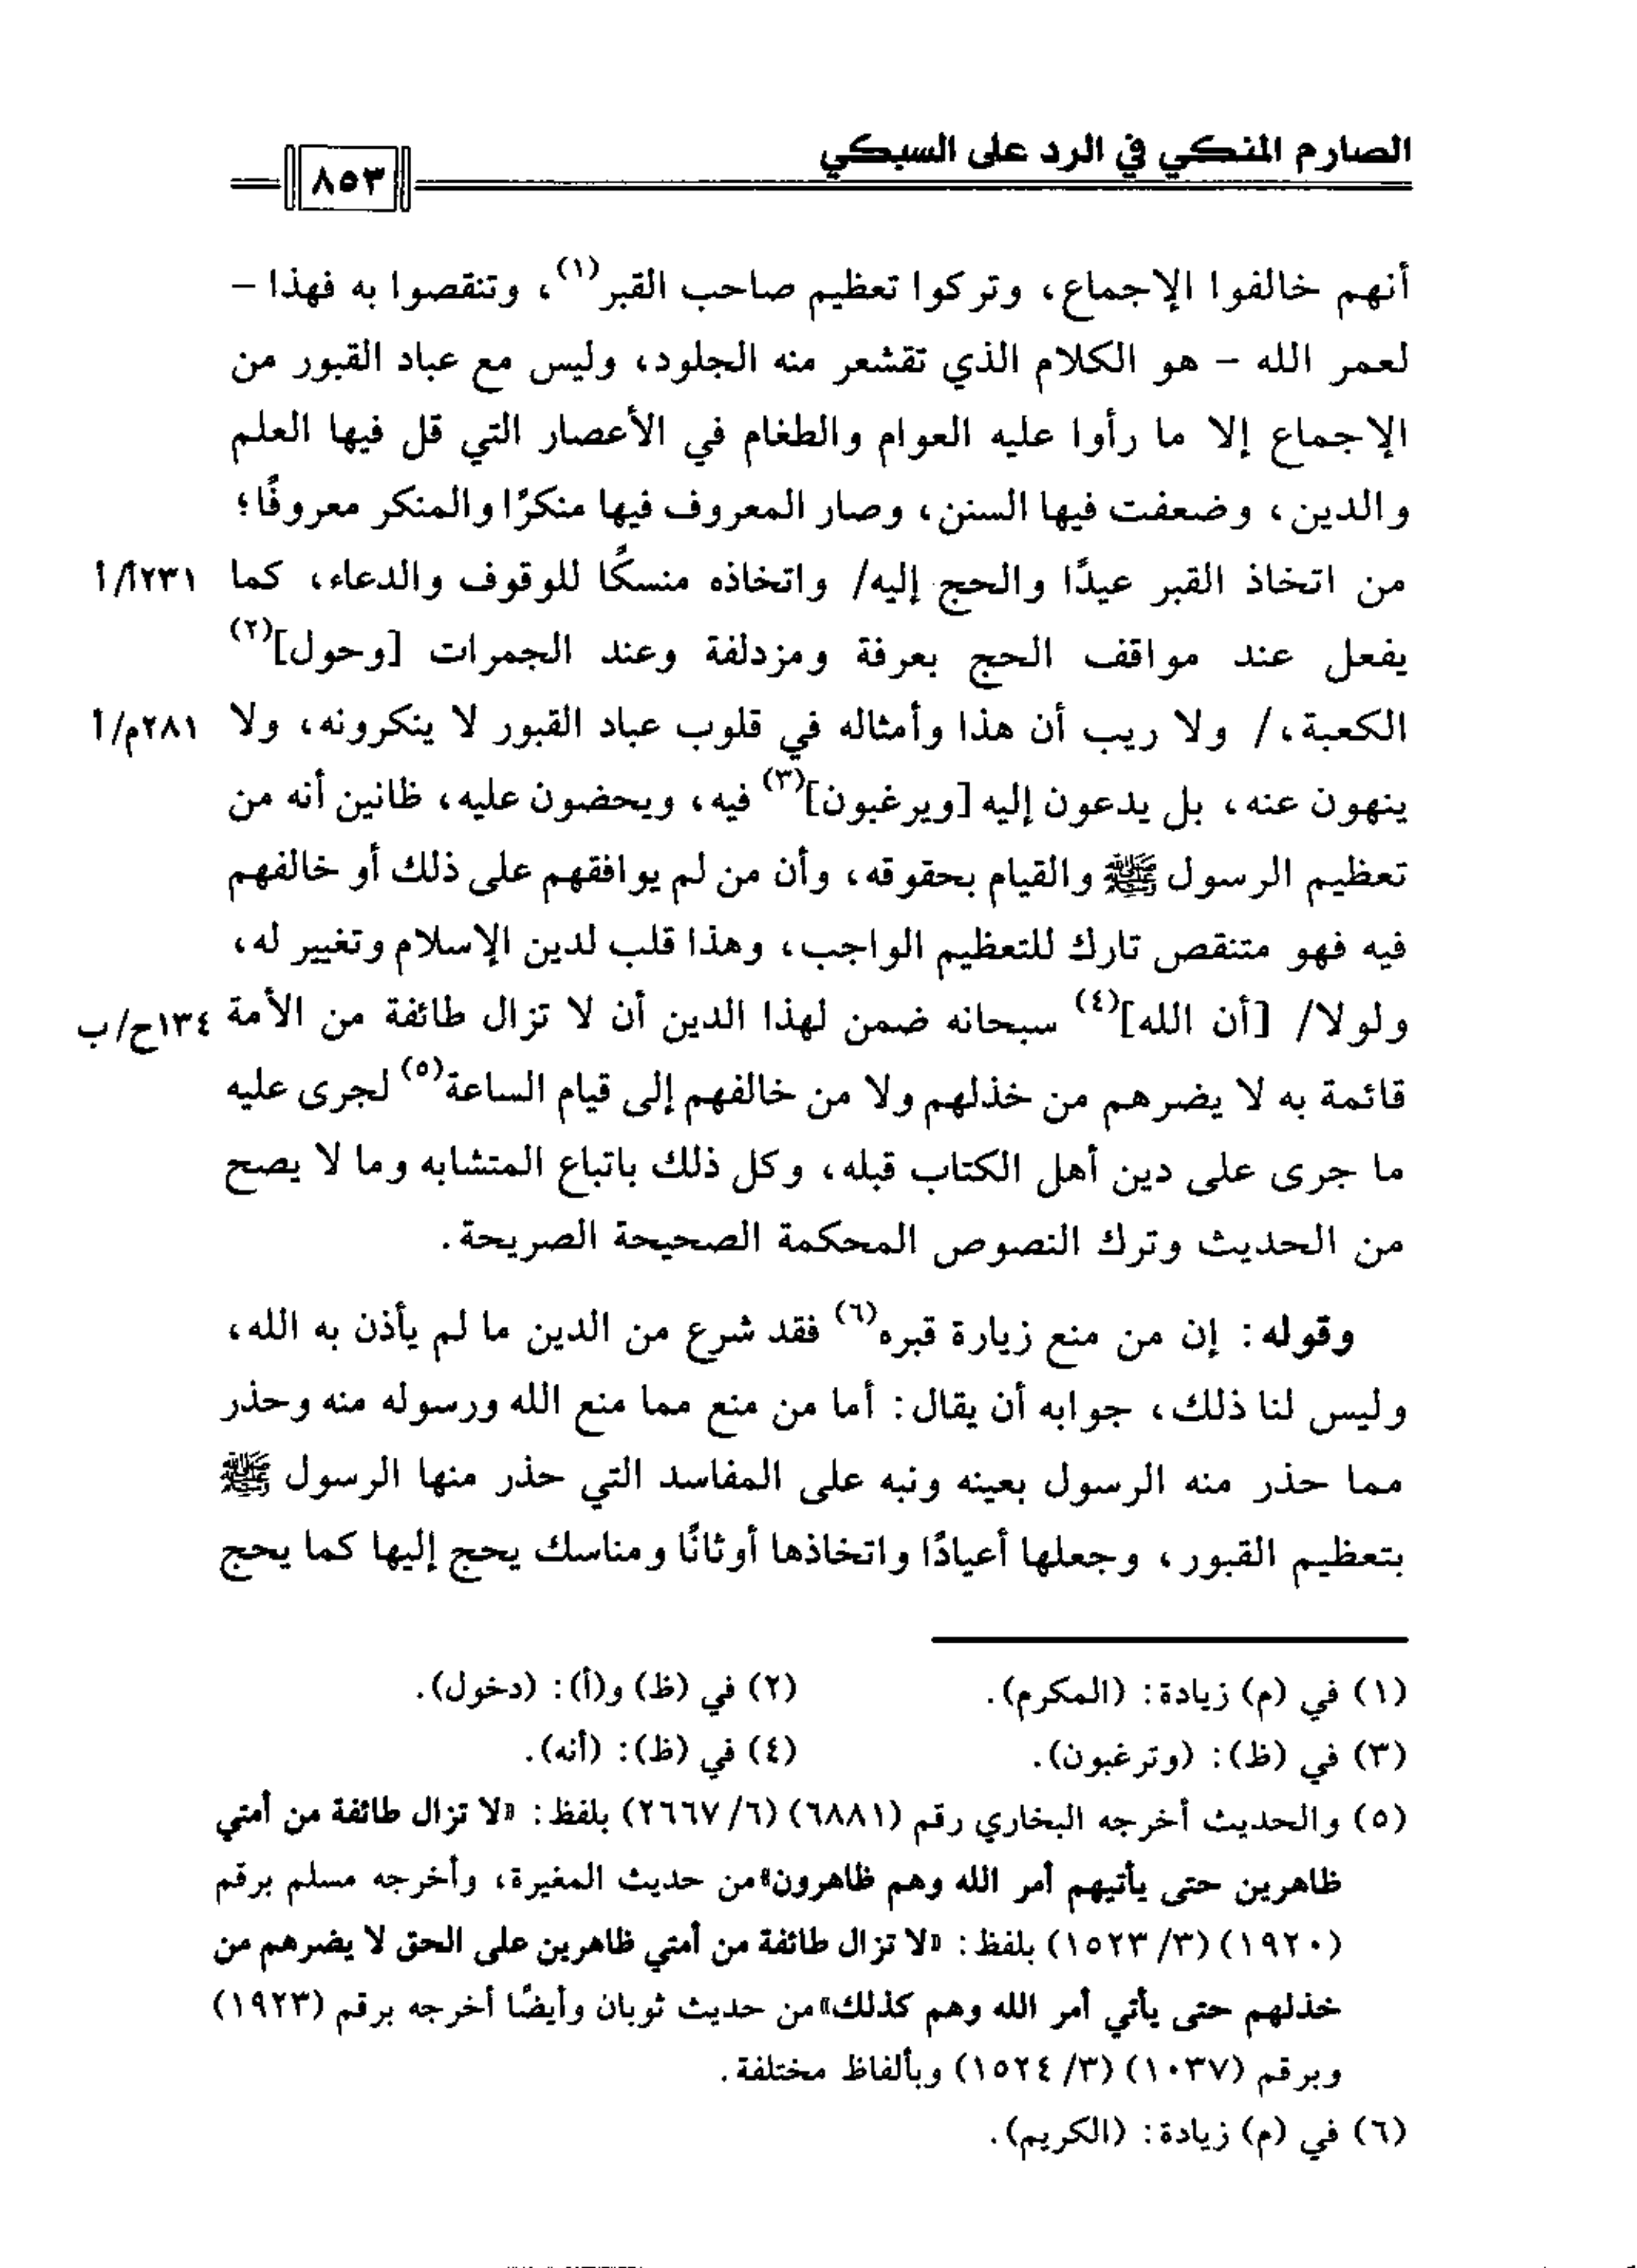 الصارم المنكي في الرد على السبكي
٨٥٣
أنهم خالفوا الإجماع، وتركوا تعظيم صاحب القبر(١)، وتنقصوا به فهذا -
لعمر الله - هو الكلام الذي تقشعر منه الجلود، وليس مع عباد القبور من
الإجماع إلا ما رأوا عليه العوام والطغام في الأعصار التي قل فيها العلم
والدين، وضعفت فيها السنن، وصار المعروف فيها منكرًا والمنكر معروفًا؛
من اتخاذ القبر عيدًا والحج إليه/ واتخاذه منسكًا للوقوف والدعاء، كما ٢٣١أ/أ
يفعل عند مواقف الحج بعرفة ومزدلفة وعند الجمرات [وحول](٢)
الكعبة،/ ولا ريب أن هذا وأمثاله في قلوب عباد القبور لا ينكرونه، ولا ٢٨١م/أ
ينهون عنه، بل يدعون إليه [ويرغبون](٣) فيه، ويحضون عليه، ظانين أنه من
تعظيم الرسول ﷺ والقيام بحقوقه، وأن من لم يوافقهم على ذلك أو خالفهم
فيه فهو متنقص تارك للتعظيم الواجب، وهذا قلب لدين الإسلام وتغيير له،
ولولا/ [أن الله](٤) سبحانه ضمن لهذا الدين أن لا تزال طائفة من الأمة ١٣٤ح/ب
قائمة به لا يضرهم من خذلهم ولا من خالفهم إلى قيام الساعة(٥) لجرى عليه
ما جرى على دين أهل الكتاب قبله، وكل ذلك باتباع المتشابه وما لا يصح
من الحديث وترك النصوص المحكمة الصحيحة الصريحة.
وقوله: إن من منع زيارة قبره(٦) فقد شرع من الدين ما لم يأذن به الله،
وليس لنا ذلك، جوابه أن يقال: أما من منع مما منع الله ورسوله منه وحذر
مما حذر منه الرسول بعينه ونبه على المفاسد التي حذر منها الرسول ﷺ
بتعظيم القبور، وجعلها أعيادًا واتخاذها أوثانًا ومناسك يحج إليها كما يحج
(١) في (م) زيادة: (المكرم). (٢) في (ظ) و(أ): (دخول).
(٣) في (ظ): (وترغبون). (٤) في (ظ): (أنه).
(٥) والحديث أخرجه البخاري رقم (٦٨٨١) (٦/ ٢٦٦٧) بلفظ: «لا تزال طائفة من أمتي
ظاهرين حتى يأتيهم أمر الله وهم ظاهرون» من حديث المغيرة، وأخرجه مسلم برقم
(١٩٢٠) (٣/ ١٥٢٣) بلفظ: «لا تزال طائفة من أمتي ظاهرين على الحق لا يضرهم من
خذلهم حتى يأتي أمر الله وهم كذلك» من حديث ثوبان وأيضًا أخرجه برقم (١٩٢٣)
وبرقم (١٠٣٧) (٣/ ١٥٢٤) وبألفاظ مختلفة.
(٦) في (م) زيادة: (الكريم).